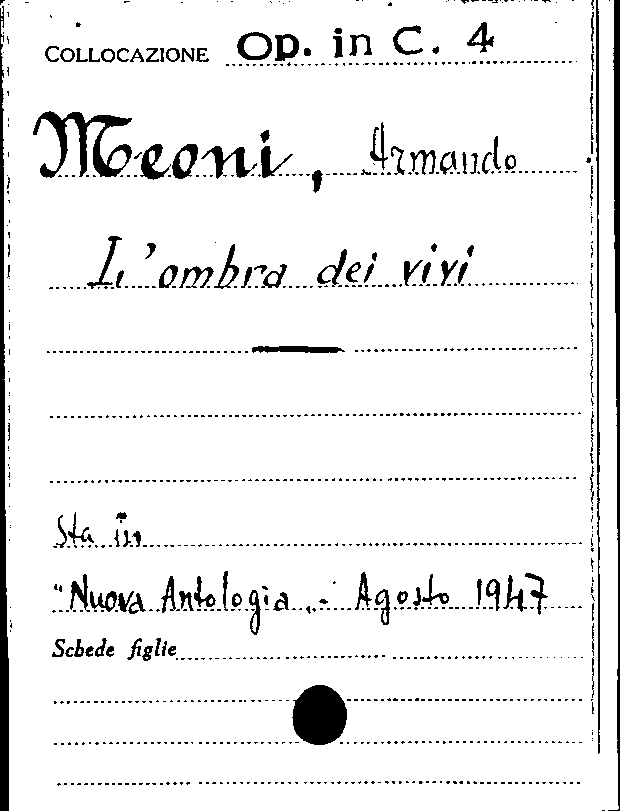 COLLOCAZIONE Op. in C. 4
Meoni, Armando
L'ombra dei vivi
Sta in
"Nuova Antologia„ - Agosto 1947
Schede figlie